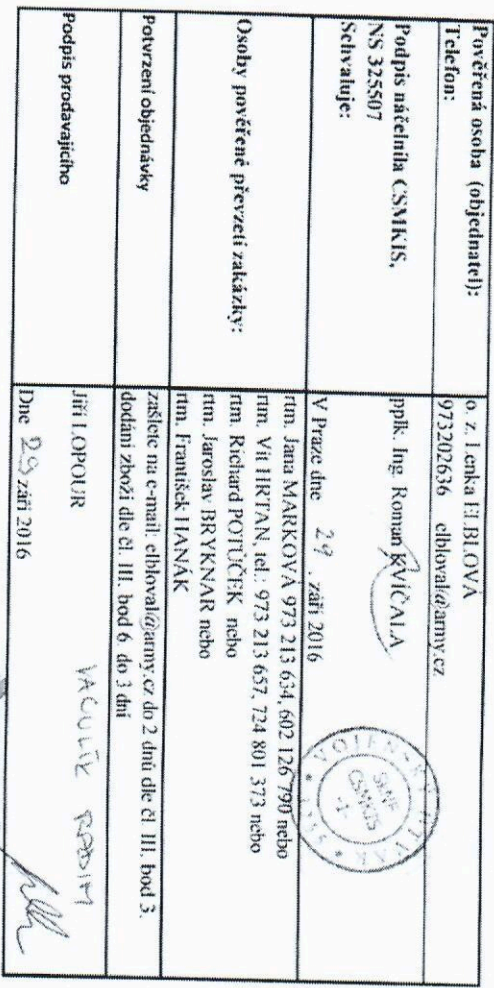 Pověřená osoba (objednatel): o. z. Lenka ELBLOVÁ
Telefon: 973202636 elbloval@army.cz
Podpis náčelníla CSMKIS, pplk. Ing. Roman KVÍČALA
NS 325507
Schvaluje: V Praze dne 29. září 2016
VOJENSKÝ ÚTVAR
CSMKIS
Osoby pověřené převzetí zakázky: rtm. Jana MARKOVÁ 973 213 634, 602 126 790 nebo
rtm. Vít HRTAN, tel.: 973 213 657, 724 801 373 nebo
rtm. Richard POTŮČEK nebo
rtm. Jaroslav BRYKNAR nebo
rtm. František HANÁK
Potvrzení objednávky zašlete na e-mail: elbloval@army.cz do 2 dnů dle čl. III. bod 3.
dodání zboží dle čl. III. bod 6. do 3 dní
Podpis prodavajícího Jiří LOPOUR VACULÍK RADIM
Dne 29 září 2016